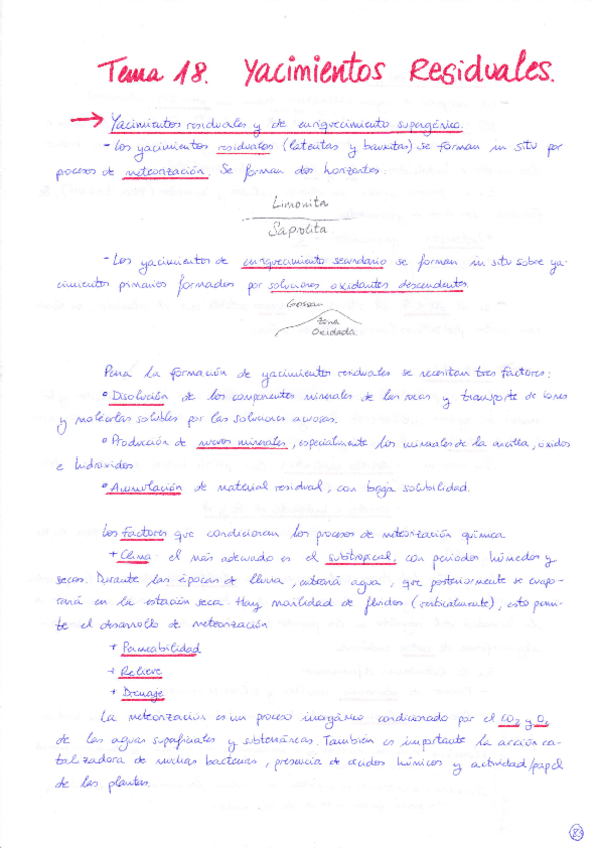 Tema 18. Yacimientos Residuales.
→ Yacimientos residuales y de enriquecimiento supergénico.
- Los yacimientos residuales (lateritas y bauxitas) se forman in situ por
procesos de meteorización. Se forman dos horizontes.
Limonita
Saprolita
- Los yacimientos de enriquecimiento secundario se forman in situ sobre ya-
cimientos primarios formados por soluciones oxidantes descendentes.
Gossan
Zona
Oxidada
Para la formación de yacimientos residuales se necesitan tres factores:
• Disolución de los componentes minerales de las rocas y transporte de iones
y moléculas solubles por las soluciones acuosas.
• Producción de nuevos minerales, especialmente los minerales de la arcilla, óxidos
e hidróxidos
• Acumulación de material residual, con baja solubilidad.
Los factores que condicionan los procesos de meteorización química
+ Clima: el más adecuado es el subtropical, con periodos húmedos y
secos. Durante las épocas de lluvia, entrará agua, que posteriormente se evapo-
rará en la estación seca. Hay movilidad de fluidos (verticalmente), esto permi-
te el desarrollo de meteorización
+ Permeabilidad
+ Relieve
+ Drenage
La meteorización es un proceso inorgánico condicionado por el CO2 y O2
de las aguas superficiales y subterráneas. También es importante la acción ca-
talizadora de muchas bacterias, presencia de ácidos húmicos y actividad/papel
de las plantas.